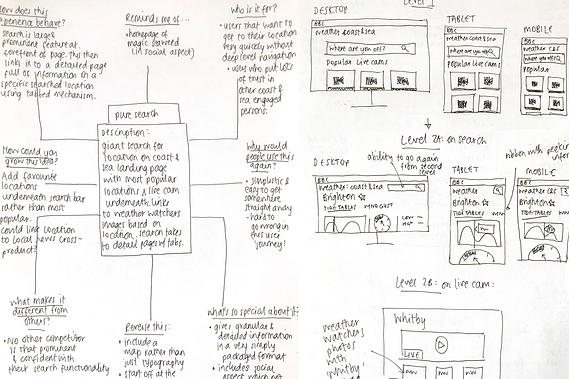 How does this
behave?
search is large &
prominent feature at
forefront of page. This then
links to a detailed page
full of information on a
specific searched location
using tabbed mechanism.
Reminds me of...
homepage of
magic seaweed
(in social aspect)
who is it for?
• users that want to
get to their location
very quickly without
deep level navigation
• users who put lots
of trust in
other coast &
sea engaged
persons.
pure search
Description:
giant search for
location on coast &
sea landing page
with most popular
locations & live cam
underneath. links
to weather watchers
images based on
location. search takes
to detail pages w/ tabs.
How could you
grow this idea?
Add favourite
locations
underneath search bar
rather than most
popular.
could link location
to local news cross-
product?
Why would
people use this
again?
• simplistic &
easy to get
somewhere
straight away
- hard to
go wrong in
this user
journey!
what makes it
different from
others?
• No other competitor
is that prominent
& confident with
their search functionality
Reverse this:
• include a
map rather than
just typography
• start off at the
what's so special about it?
• gives granular &
detailed information
in a very simply
packaged format
• includes social
aspect which not
Level 1
DESKTOP
BBC
weather coast & sea
where are you off?
popular live cams
TABLET
BBC
weather coast & sea
where are you off?
popular live cams
MOBILE
BBC
weather C&S
where you off?
popular
Level 2A: on search
DESKTOP
ability to go again
from second
level
BBC
weather: coast & sea
Brighton
TIDE TABLES WIND CAST
TABLET
BBC
weather
Brighton
TIDE TABLES
ribbon with
MOBILE
BBC
weather C&S
Brighton
TIDE TABLES
Level 2B: on live cam:
Whitby
LIVE
weather
watchers
photos
with
'whitby'